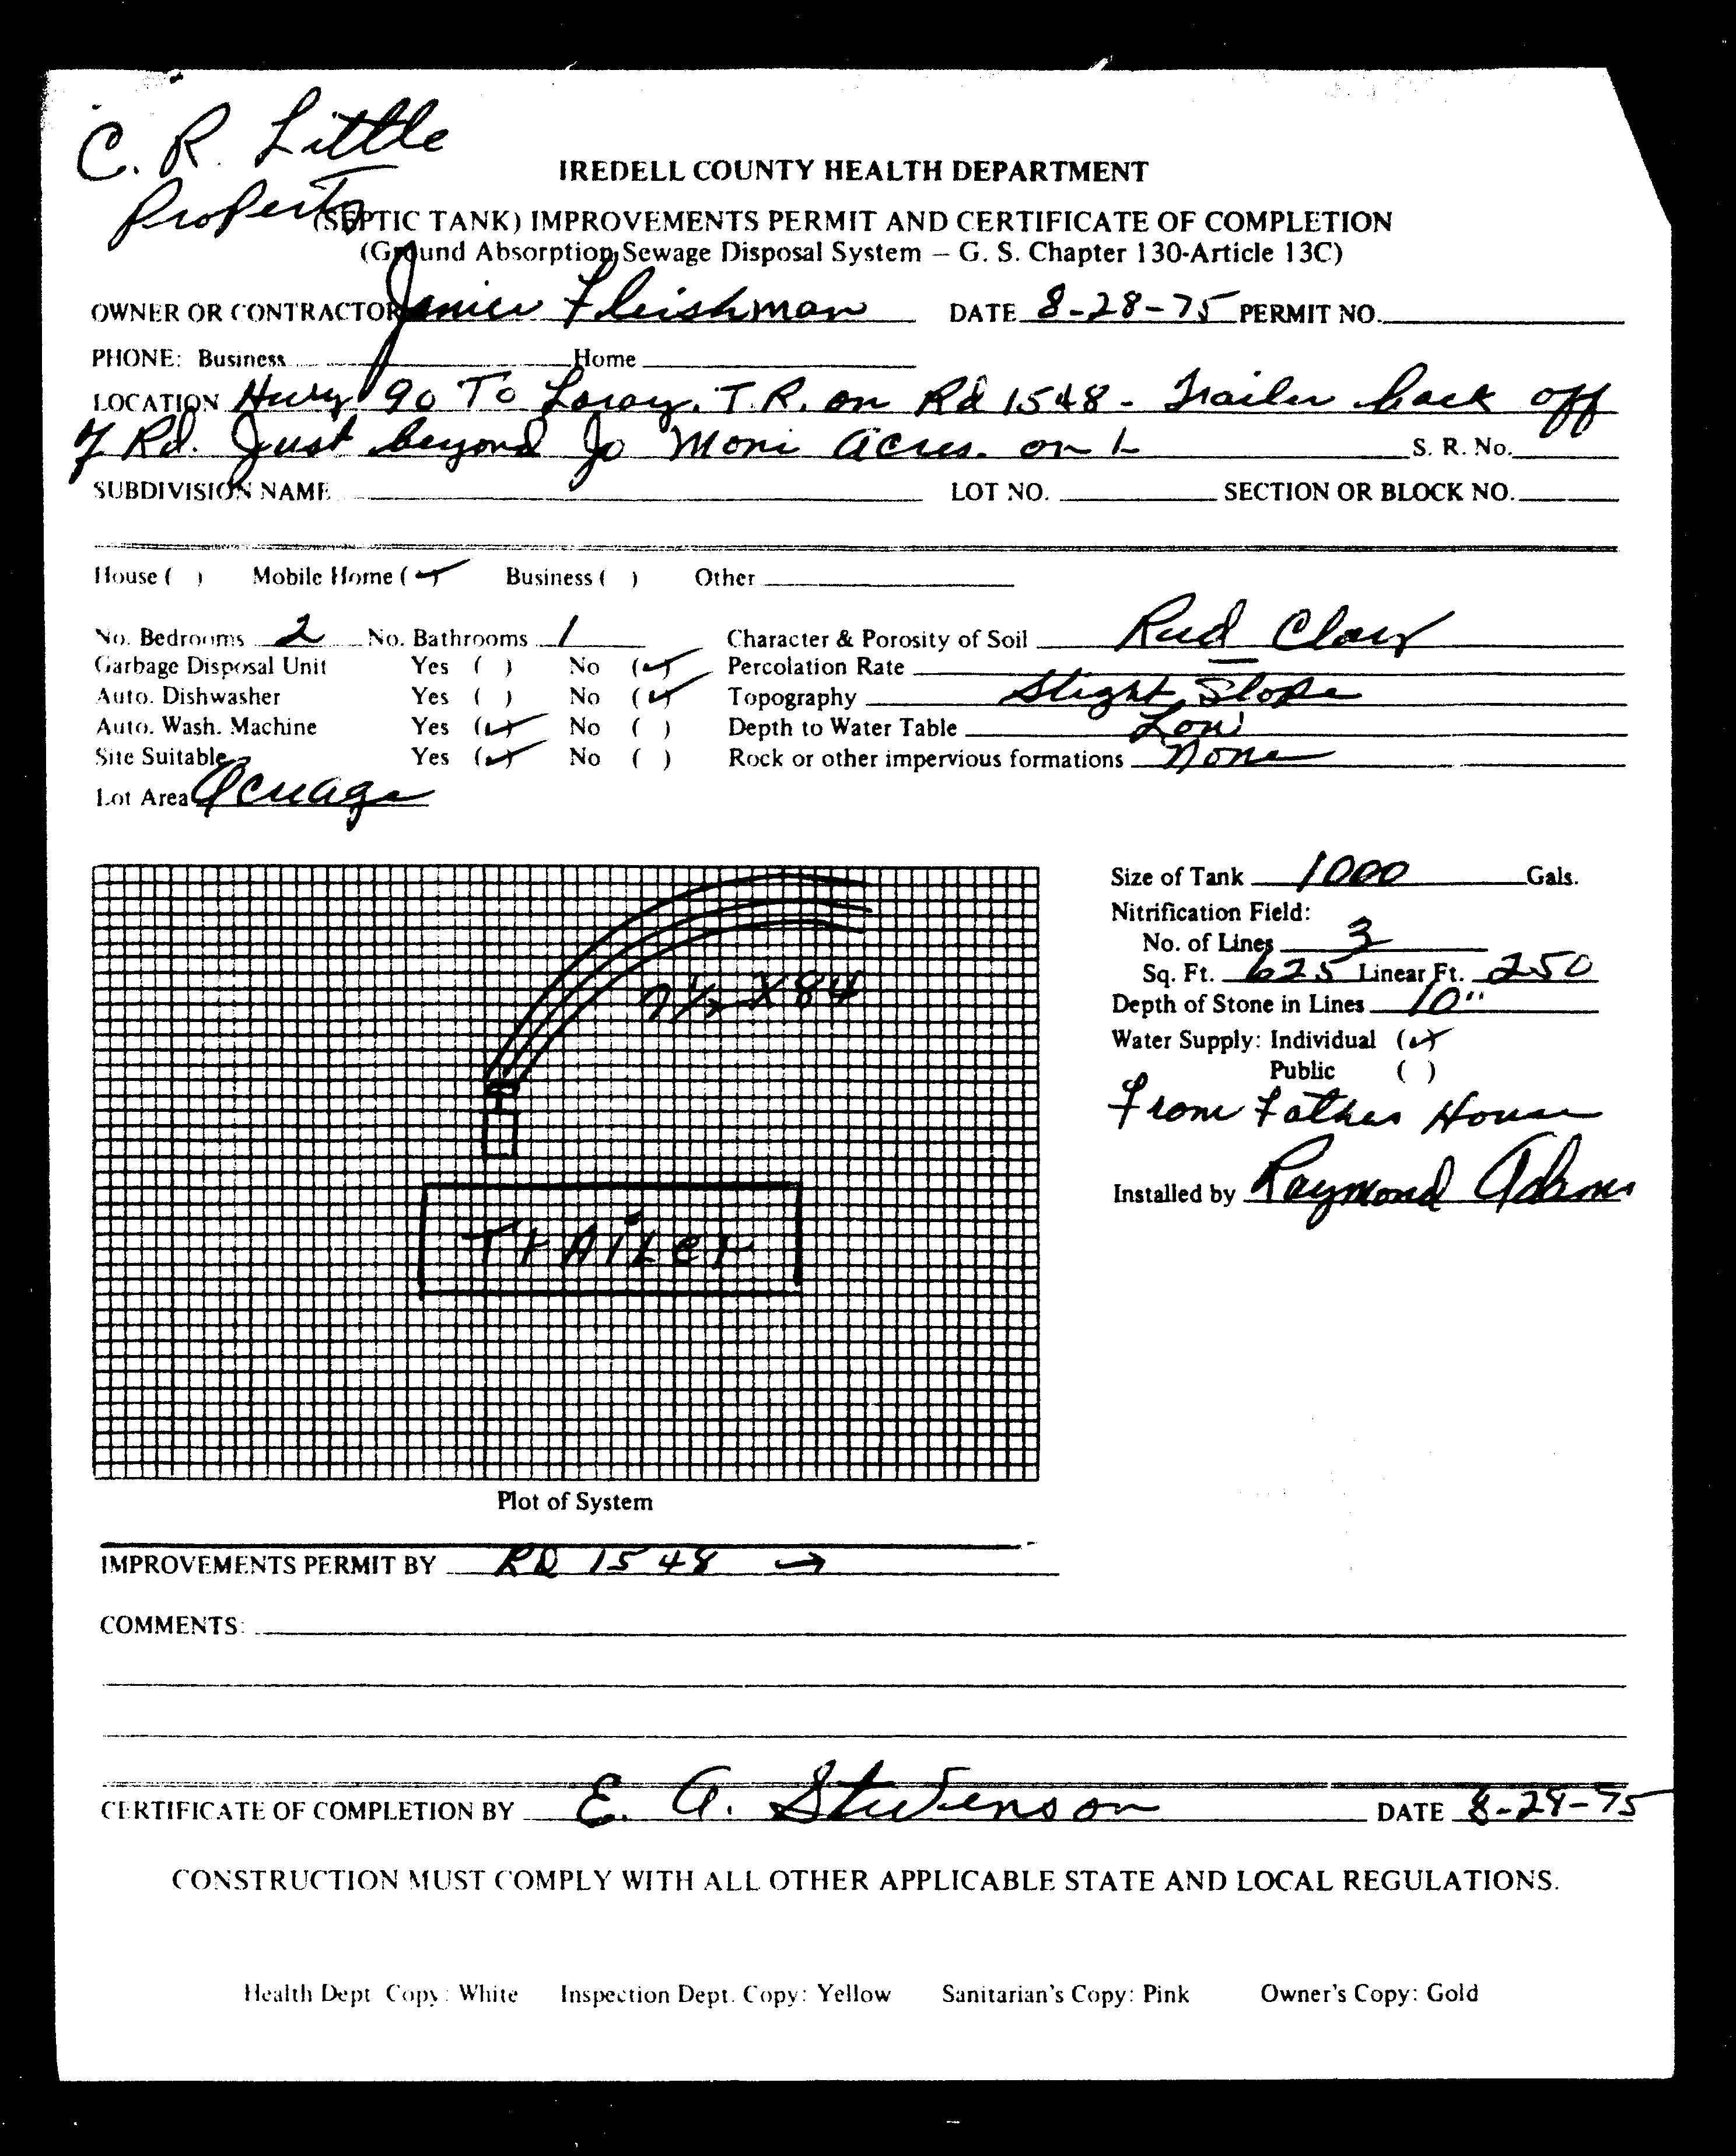 C. R. Little
Property
IREDELL COUNTY HEALTH DEPARTMENT
(SEPTIC TANK) IMPROVEMENTS PERMIT AND CERTIFICATE OF COMPLETION
(Ground Absorption Sewage Disposal System – G. S. Chapter 130-Article 13C)
OWNER OR CONTRACTOR Janice Fleishman DATE 8-28-75 PERMIT NO.
PHONE: Business Home
LOCATION Hwy 90 To Loray. T.R. on Rd 1548 - Trailer back off
of Rd. Just beyond Jo Moni Acres. on L S. R. No.
SUBDIVISION NAME LOT NO. SECTION OR BLOCK NO.
House ( ) Mobile Home (✓) Business ( ) Other
No. Bedrooms 2 No. Bathrooms 1 Character & Porosity of Soil Red Clay
Garbage Disposal Unit Yes ( ) No (✓) Percolation Rate —
Auto. Dishwasher Yes ( ) No (✓) Topography Slight Slope
Auto. Wash. Machine Yes (✓) No ( ) Depth to Water Table Low
Site Suitable Yes (✓) No ( ) Rock or other impervious formations None
Lot Area Acreage
Size of Tank 1000 Gals.
Nitrification Field:
No. of Lines 3
Sq. Ft. 625 Linear Ft. 250
Depth of Stone in Lines 10"
Water Supply: Individual (✓)
Public ( )
From Fathers House
Installed by Raymond Adams
7½ X 84
TrAiler
Plot of System
IMPROVEMENTS PERMIT BY RD 1548 →
COMMENTS:
CERTIFICATE OF COMPLETION BY E. A. Stevenson DATE 8-28-75
CONSTRUCTION MUST COMPLY WITH ALL OTHER APPLICABLE STATE AND LOCAL REGULATIONS.
Health Dept Copy: White Inspection Dept. Copy: Yellow Sanitarian's Copy: Pink Owner's Copy: Gold